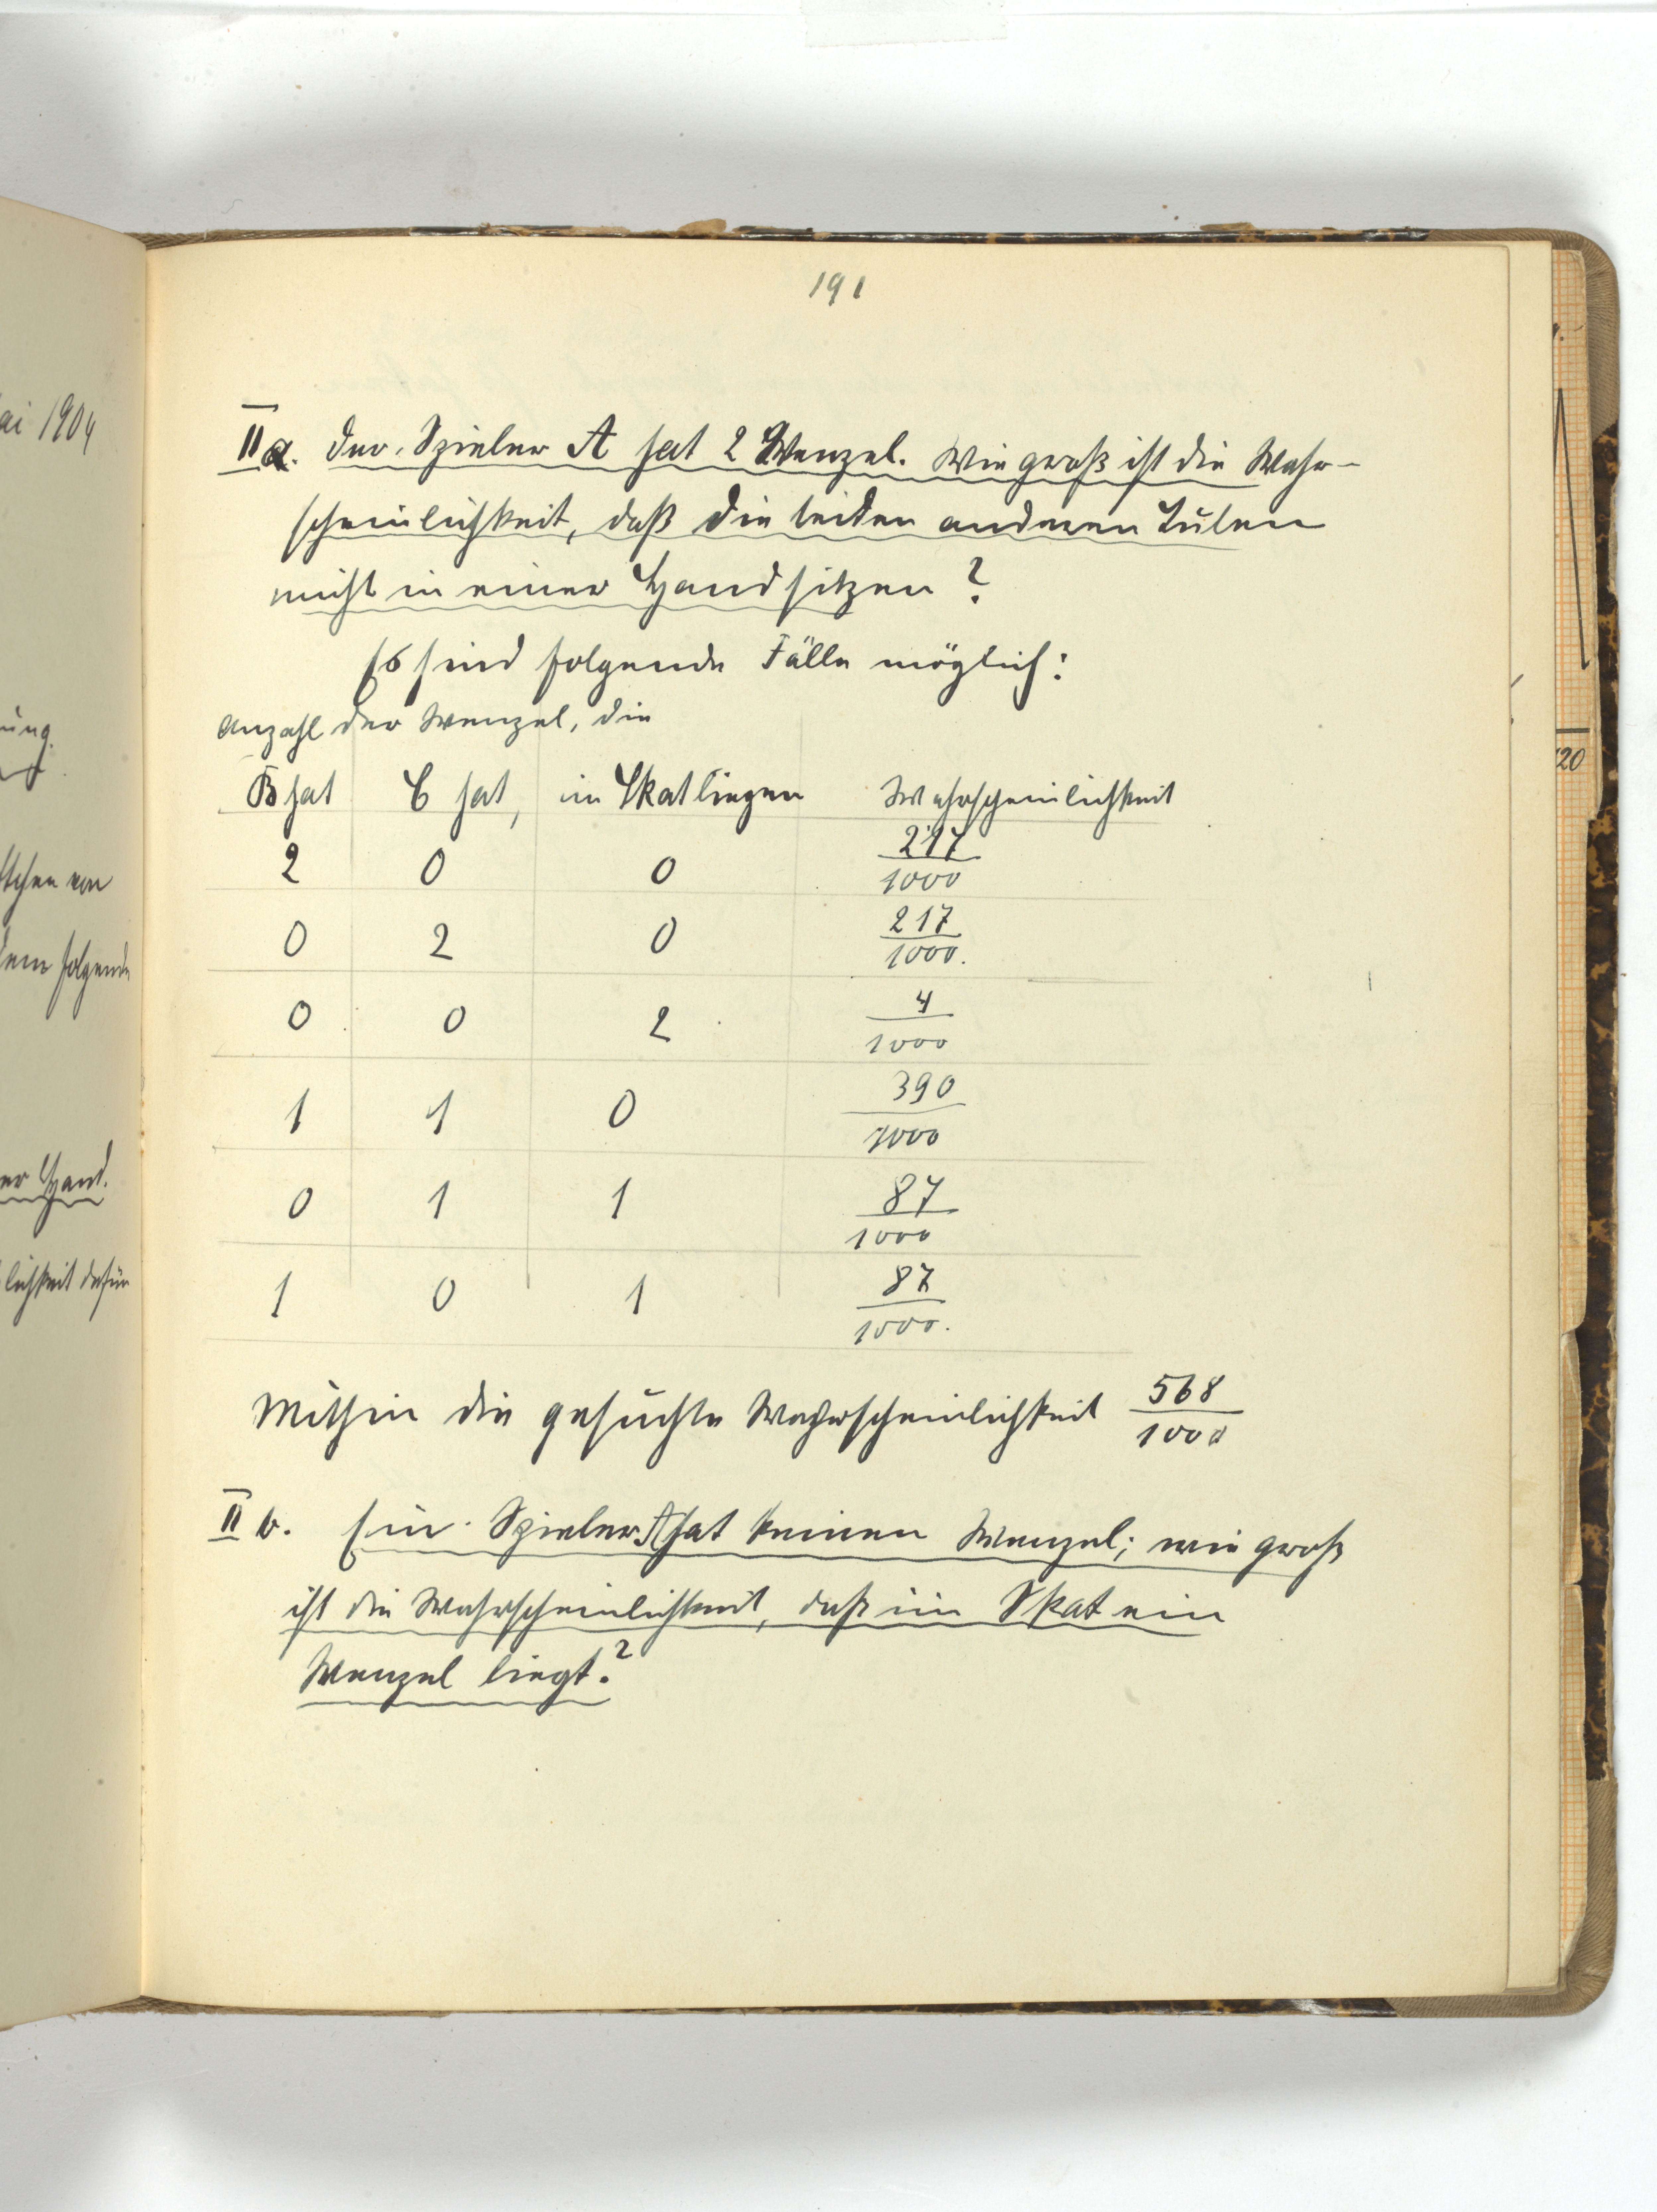 191
IIa. Der Spieler A hat 2 Wenzel. Wie groß ist die Wahr-
scheinlichkeit, daß die beiden anderen Buben
nicht in einer Hand sitzen?
Es sind folgende Fälle möglich:
Anzahl der Wenzel, die
B hat C hat, im Skat liegen Wahrscheinlichkeit
2 0 0 217/1000
0 2 0 217/1000.
0 0 2 4/1000
1 1 0 390/1000
0 1 1 87/1000
1 0 1 87/1000.
Mithin die gesuchte Wahrscheinlichkeit 568/1000
II b. Ein Spieler A hat keinen Wenzel; wie groß
ist die Wahrscheinlichkeit, daß im Skat ein
Wenzel liegt?
ai 1904
ung.
von
dem folgende
er Hand.
lichkeit dafür
20